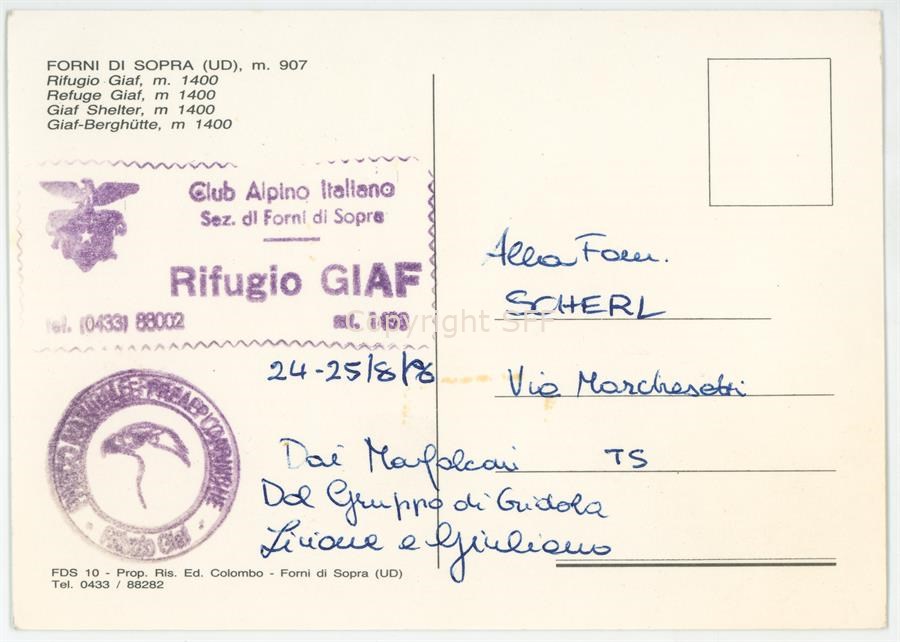 FORNI DI SOPRA (UD), m. 907
Rifugio Giaf, m. 1400
Refuge Giaf, m 1400
Giaf Shelter, m 1400
Giaf-Berghütte, m 1400
Club Alpino Italiano
Sez. di Forni di Sopra
Rifugio GIAF
tel. (0433) 88002
Copyright SFF
Rifugio Giaf
24-25/8/
Alla Fam.
SCHERL
Via Marchesetti
TS
Dai
Dal Gruppo di Cridola
e Giuliano
FDS 10 - Prop. Ris. Ed. Colombo - Forni di Sopra (UD)
Tel. 0433 / 88282